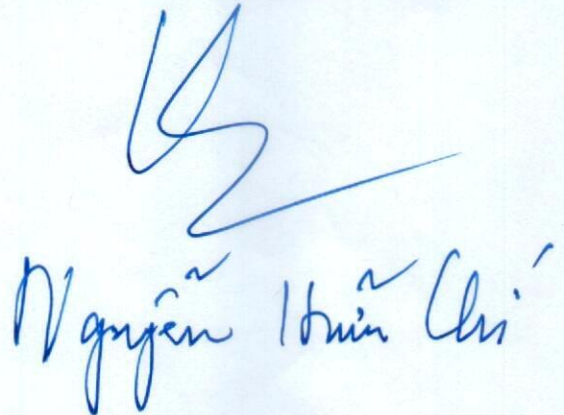 Nguyễn Hữu Chí